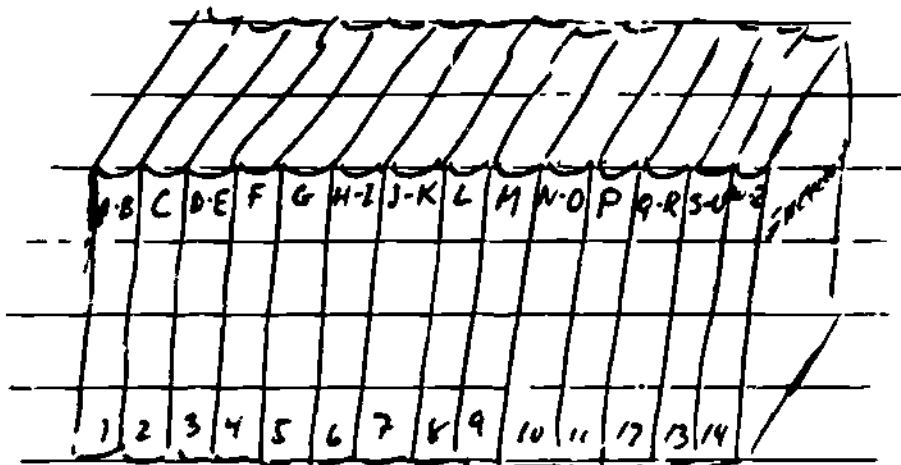 A-B C D-E F G H-I J-K L M N-O P Q-R S-V W-Z
1 2 3 4 5 6 7 8 9 10 11 12 13 14